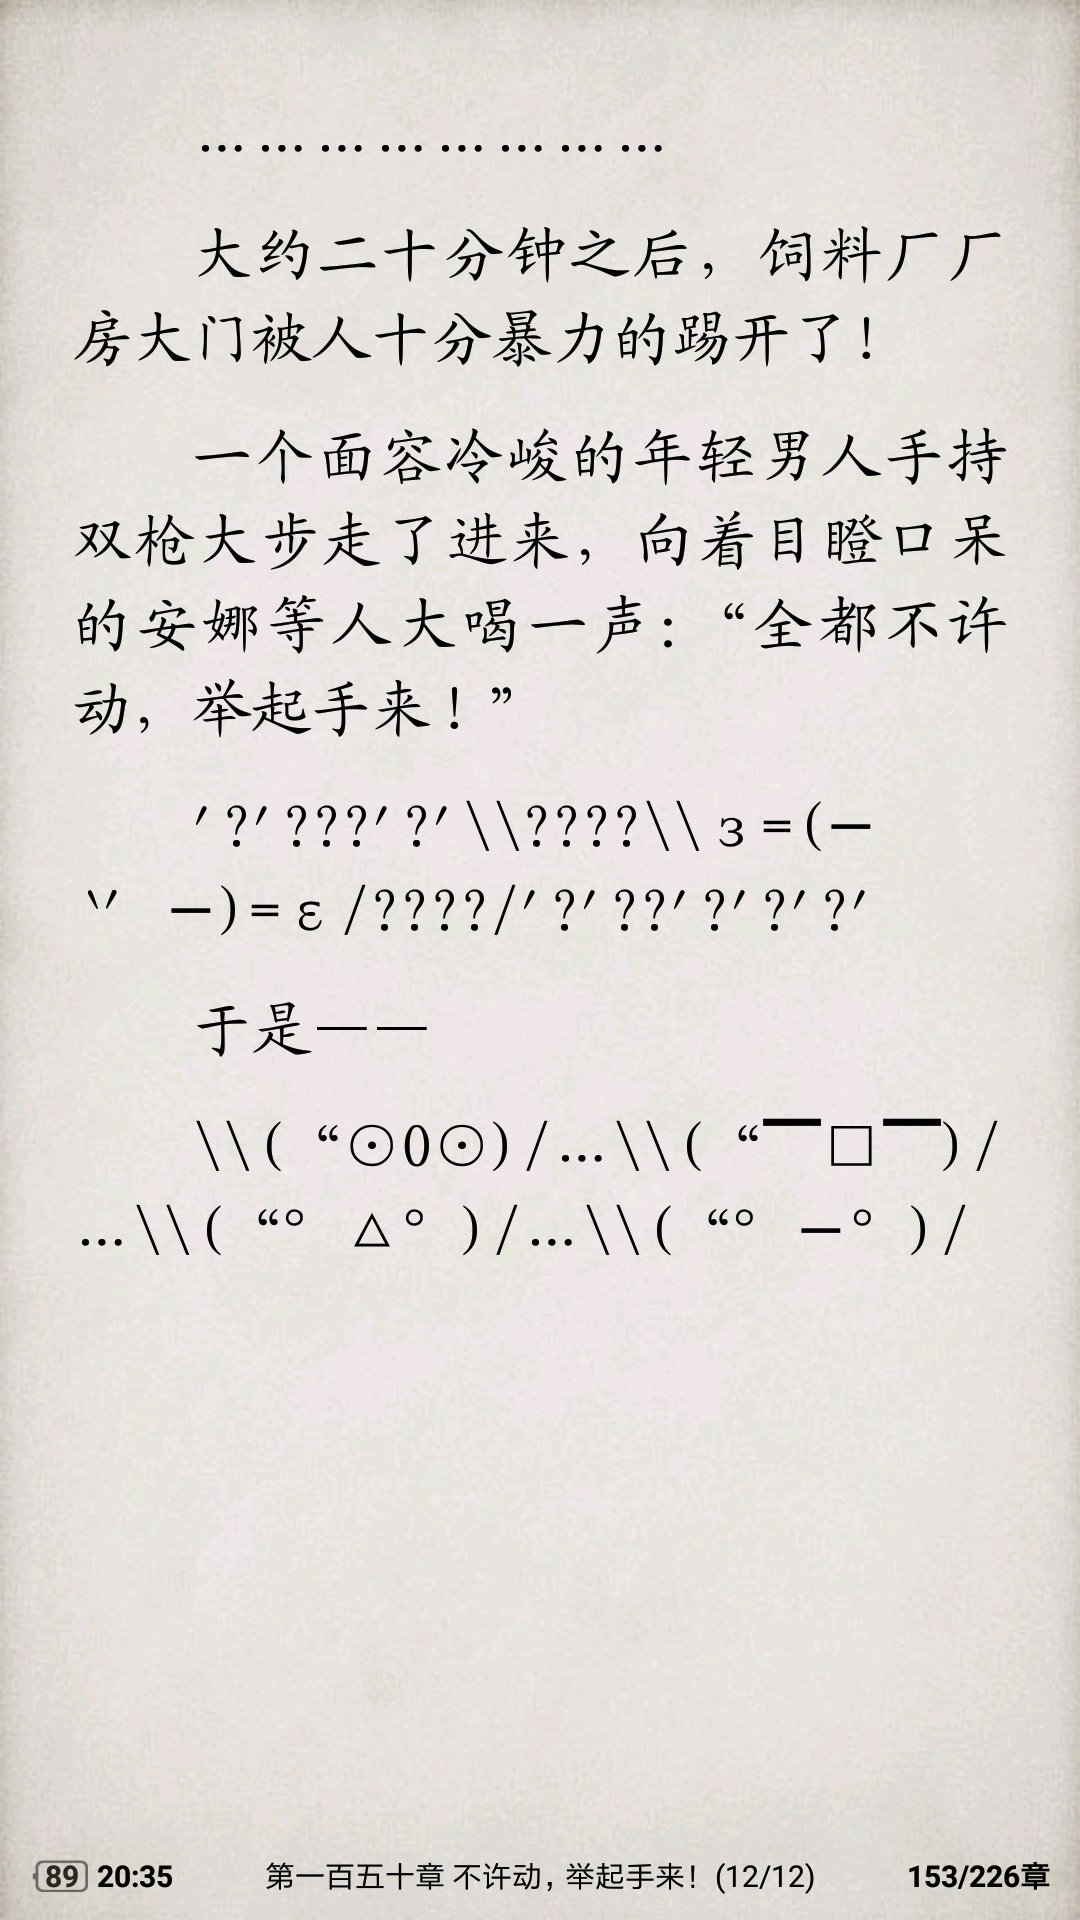 … … … … … … … …
大约二十分钟之后，饲料厂厂
房大门被人十分暴力的踢开了！
一个面容冷峻的年轻男人手持
双枪大步走了进来，向着目瞪口呆
的安娜等人大喝一声：“全都不许
动，举起手来！”
′?′???′?′\\????\\ɜ=(—
ヽ′ —)=ε/????/′?′??′?′?′?′
于是——
\\(“⊙0⊙)/…\\(“▔□▔)/
…\\(“° △° )/…\\(“° —° )/
89 20:35 第一百五十章 不许动，举起手来！(12/12) 153/226章